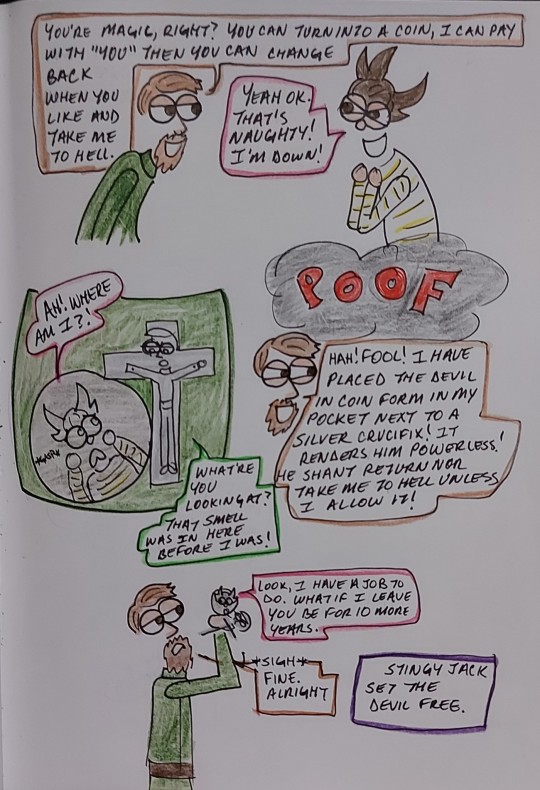 YOU'RE MAGIC, RIGHT? YOU CAN TURN INTO A COIN, I CAN PAY
WITH "YOU" THEN YOU CAN CHANGE
BACK
WHEN YOU
LIKE AND
TAKE ME
TO HELL.
YEAH OK.
THAT'S
NAUGHTY!
I'M DOWN!
POOF
AH! WHERE
AM I?!
*GASP*
WHAT'RE
YOU
LOOKING AT?
THAT SMELL
WAS IN HERE
BEFORE I WAS!
HAH! FOOL! I HAVE
PLACED THE DEVIL
IN COIN FORM IN MY
POCKET NEXT TO A
SILVER CRUCIFIX! IT
RENDERS HIM POWERLESS!
HE SHANT RETURN NOR
TAKE ME TO HELL UNLESS
I ALLOW IT!
LOOK, I HAVE A JOB TO
DO. WHAT IF I LEAVE
YOU BE FOR 10 MORE
YEARS.
*SIGH*
FINE.
ALRIGHT
STINGY JACK
SET THE
DEVIL FREE.